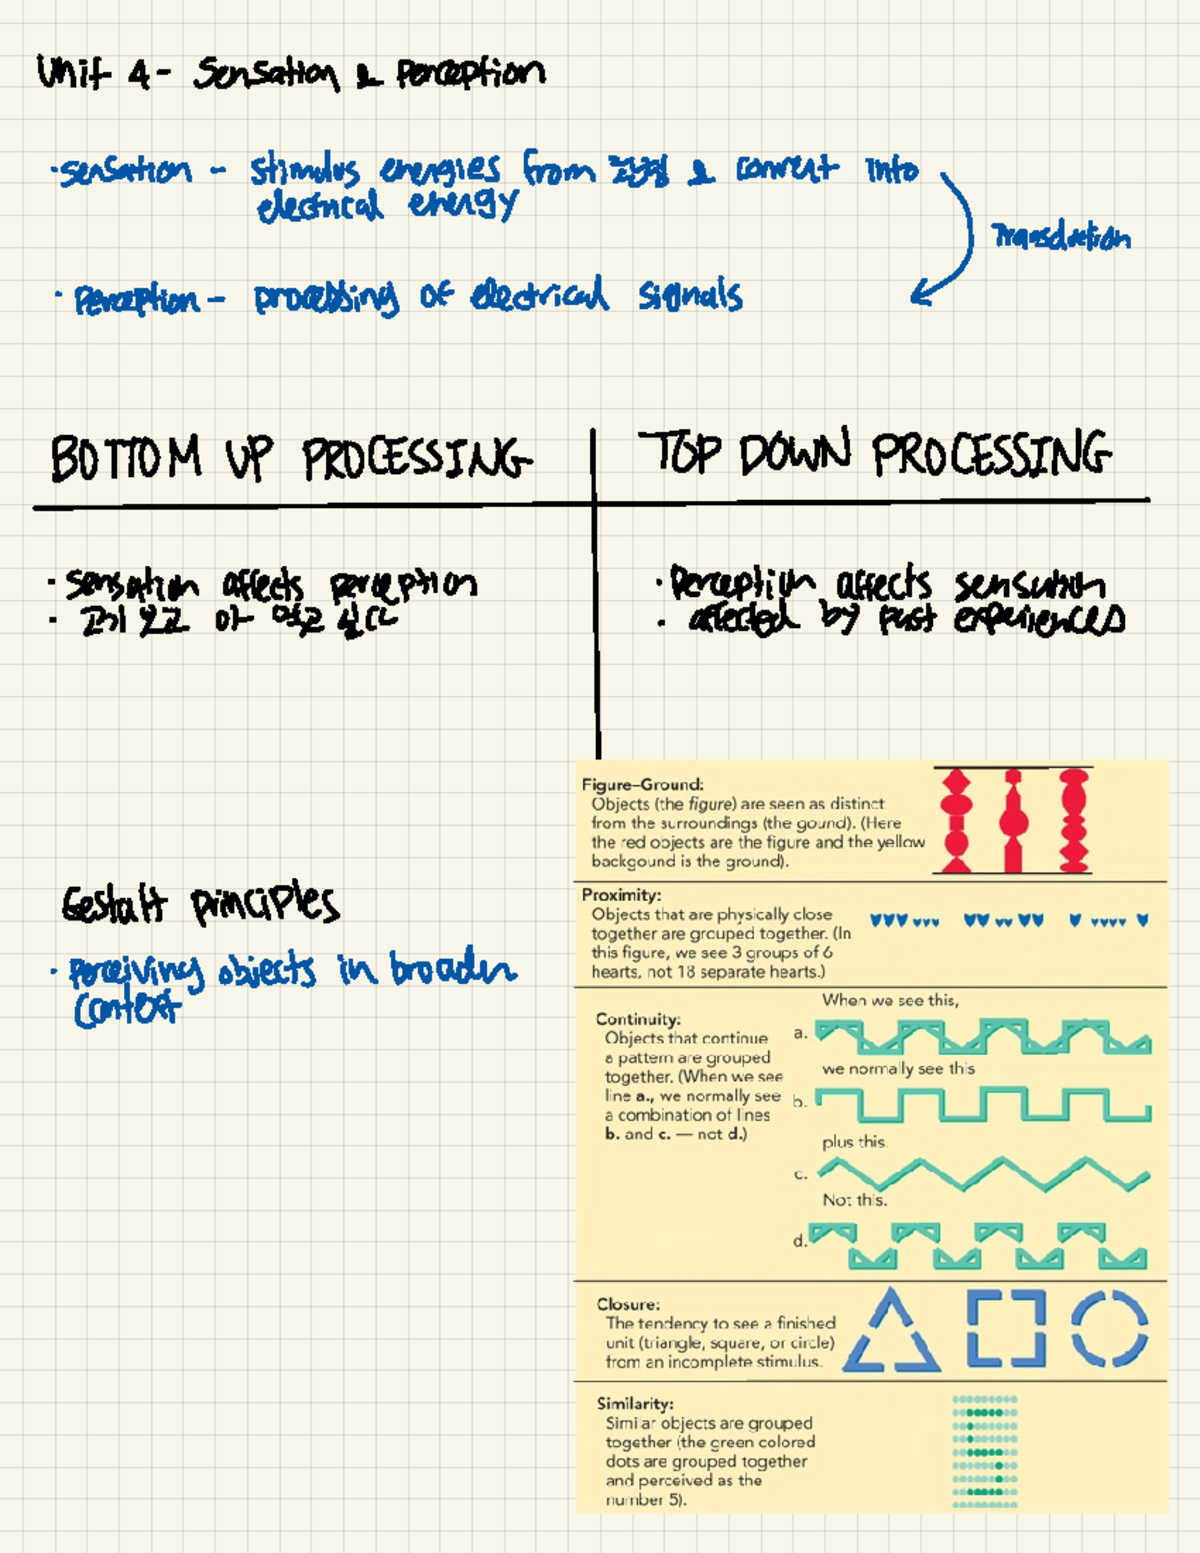 Unit 4 - Sensation & Perception
· Sensation - stimulus energies from 환경 & convert into
electrical energy
Transduction
· Perception - processing of electrical signals
BOTTOM UP PROCESSING
TOP DOWN PROCESSING
· Sensation affects perception
· 고기 보고 아 먹고 싶다
· Perception affects sensation
· affected by past experiences
Figure–Ground:
Objects (the figure) are seen as distinct
from the surroundings (the gound). (Here
the red objects are the figure and the yellow
backgound is the ground).
Gestalt principles
· Perceiving objects in broader
context
Proximity:
Objects that are physically close
together are grouped together. (In
this figure, we see 3 groups of 6
hearts, not 18 separate hearts.)
Continuity:
Objects that continue
a pattern are grouped
together. (When we see
line a., we normally see
a combination of lines
b. and c. — not d.)
When we see this,
a.
we normally see this
b.
plus this.
c.
Not this.
d.
Closure:
The tendency to see a finished
unit (triangle, square, or circle)
from an incomplete stimulus.
Similarity:
Similar objects are grouped
together (the green colored
dots are grouped together
and perceived as the
number 5).